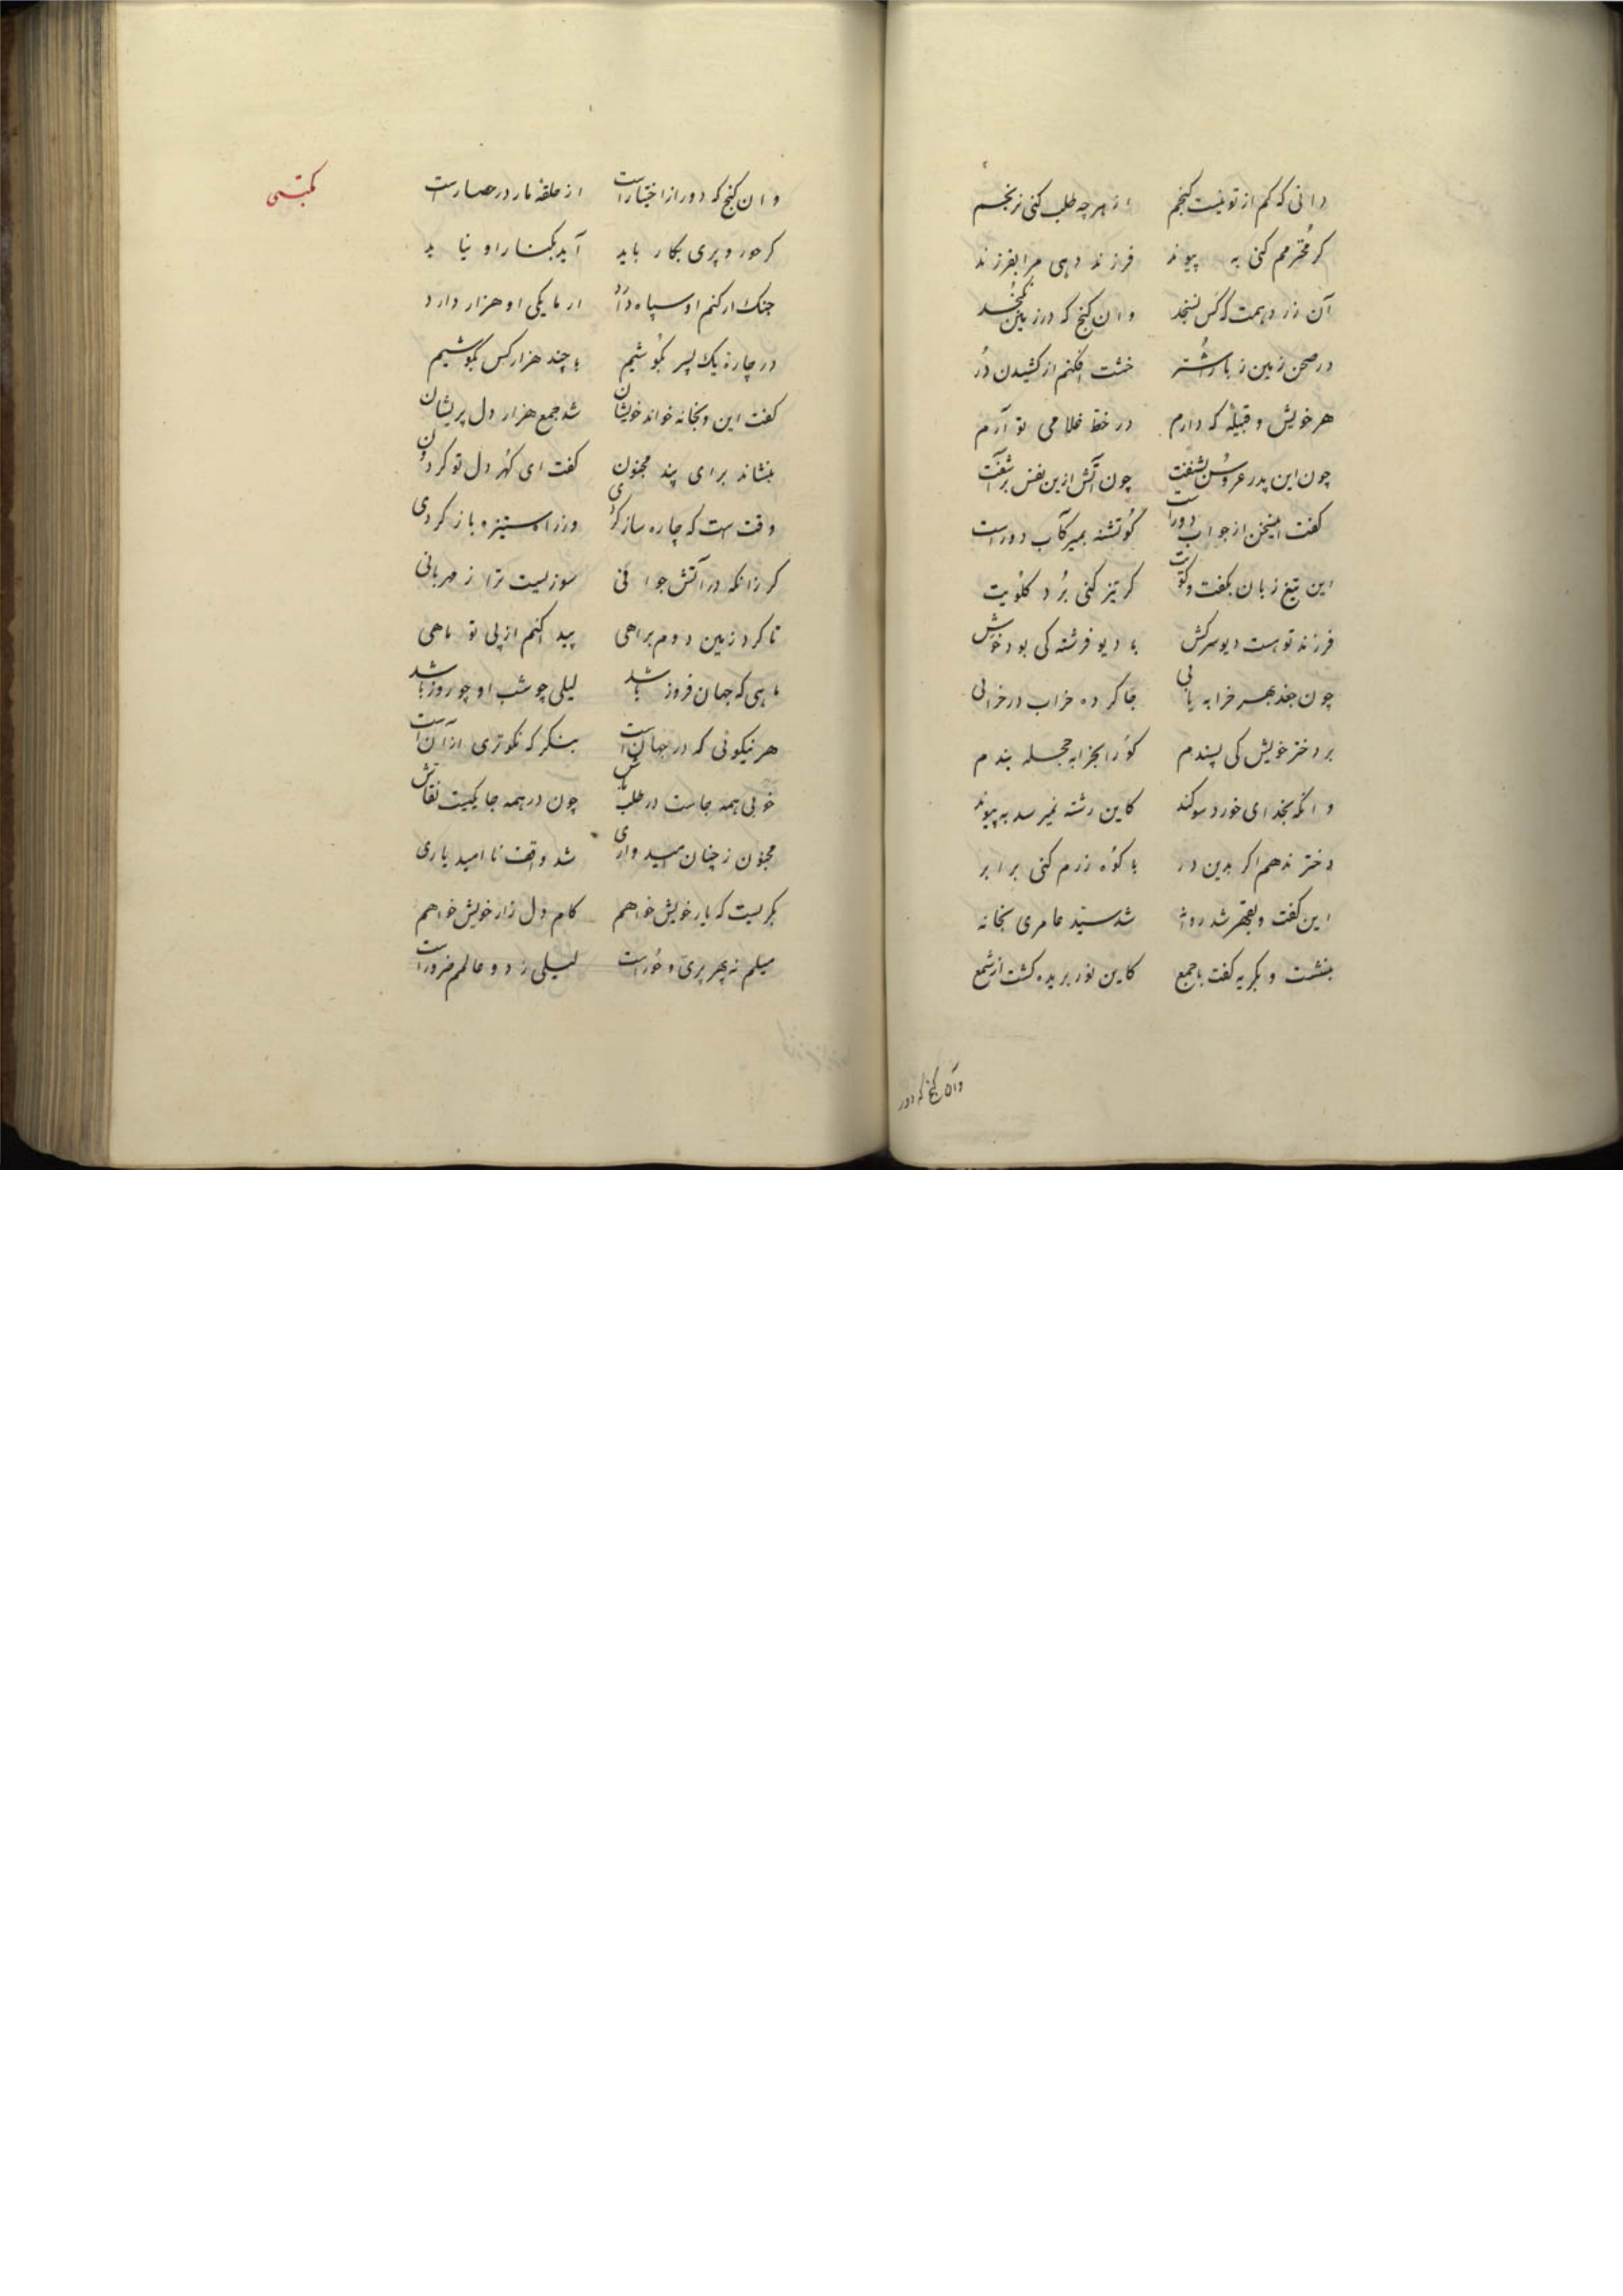 دانی که کم از تو نیست گنجم از هر چه طلب کنی نرنجم
کر محترمم کنی به پیوند فرزند دهی مرا بفرزند
آن زر دهمت که کس نسنجد وان کنج که در زمین نکنجد
در صحن زمین ز بار اشتر خشت افکنم از کشیدن در
هر خویش و قبیله که دارم در خط غلامی تو آرم
چون این پدر عروس بشنفت چون آتش ازین نفس برآشفت
کفت این سخن از جواب دورست کو تشنه بمیر کآب دورست
این تیغ زبان بکفت و کویت کر تیز کنی برد کلویت
فرزند تو هست دیو سرکش با دیو فرشته کی بود خوش
چون جغد بهر خرابه یابی جا کرده خراب در خرابی
بر دختر خویش کی پسندم کو را بخرابه حجله بندم
وانکه بخدای خورد سوکند کاین رشته نمیرسد به پیوند
دختر ندهم اکر بدین در با کوه زرم کنی برابر
این کفت و بقهر شد روانه شد سید عامری بخانه
بنشست و بکریه کفت با جمع کاین نور بریده کشت از شمع
وان کنج که دور
مکتبی
وان کنج که دور از اختیارست از حلقه مار در حصارست
کر حور و پری بکار باید آید بکنار او نیاید
جنک ار کنم او سپاه دارد ار ما یکی او هزار دارد
در چاره یک پسر بکوشیم با چند هزار کس بکوشیم
کفت این و بخانه خواند خویشان شد جمع هزار دل پریشان
بنشاند برای پند مجنون کفت ای کهر دل تو کردون
وقت ست که چاره ساز کردی وز راه ستیزه باز کردی
کر زانکه در آتش جوانی سوزیست ترا ز مهربانی
تا کرد زمین دوم براهی پیدا کنم از پی تو ماهی
ماهی که جهان فروز باشد لیلی چو شب او چو روز باشد
هر نیکوئی که در جهان است بنکر که نکوتری از آن است
خوبی همه جاست در طلب باش چون در همه جا یکیست نقاش
مجنون ز چنان امیدواری شد واقف ناامید یاری
بکریست که یار خویش خواهم کام دل زار خویش خواهم
میلم نه بهر پری و حورست لیلی ز دو عالمم ضرورست